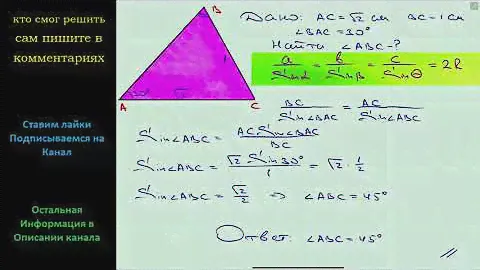 кто смог решить
сам пишите в
комментариях
Ставим лайки
Подписываемся на
Канал
Остальная
Информация в
Описании канала
B
1
30°
√2
A
C
Дано: AC=√2 см BC=1 см
∠BAC=30°
Найти ∠ABC-?
a/Sinα = b/Sinβ = c/SinΘ = 2R
BC/Sin∠BAC = AC/Sin∠ABC
Sin∠ABC = AC·Sin∠BAC/BC
Sin∠ABC = √2·Sin30°/1 = √2·1/2
Sin∠ABC = √2/2 ⇒ ∠ABC=45°
Ответ: ∠ABC=45°